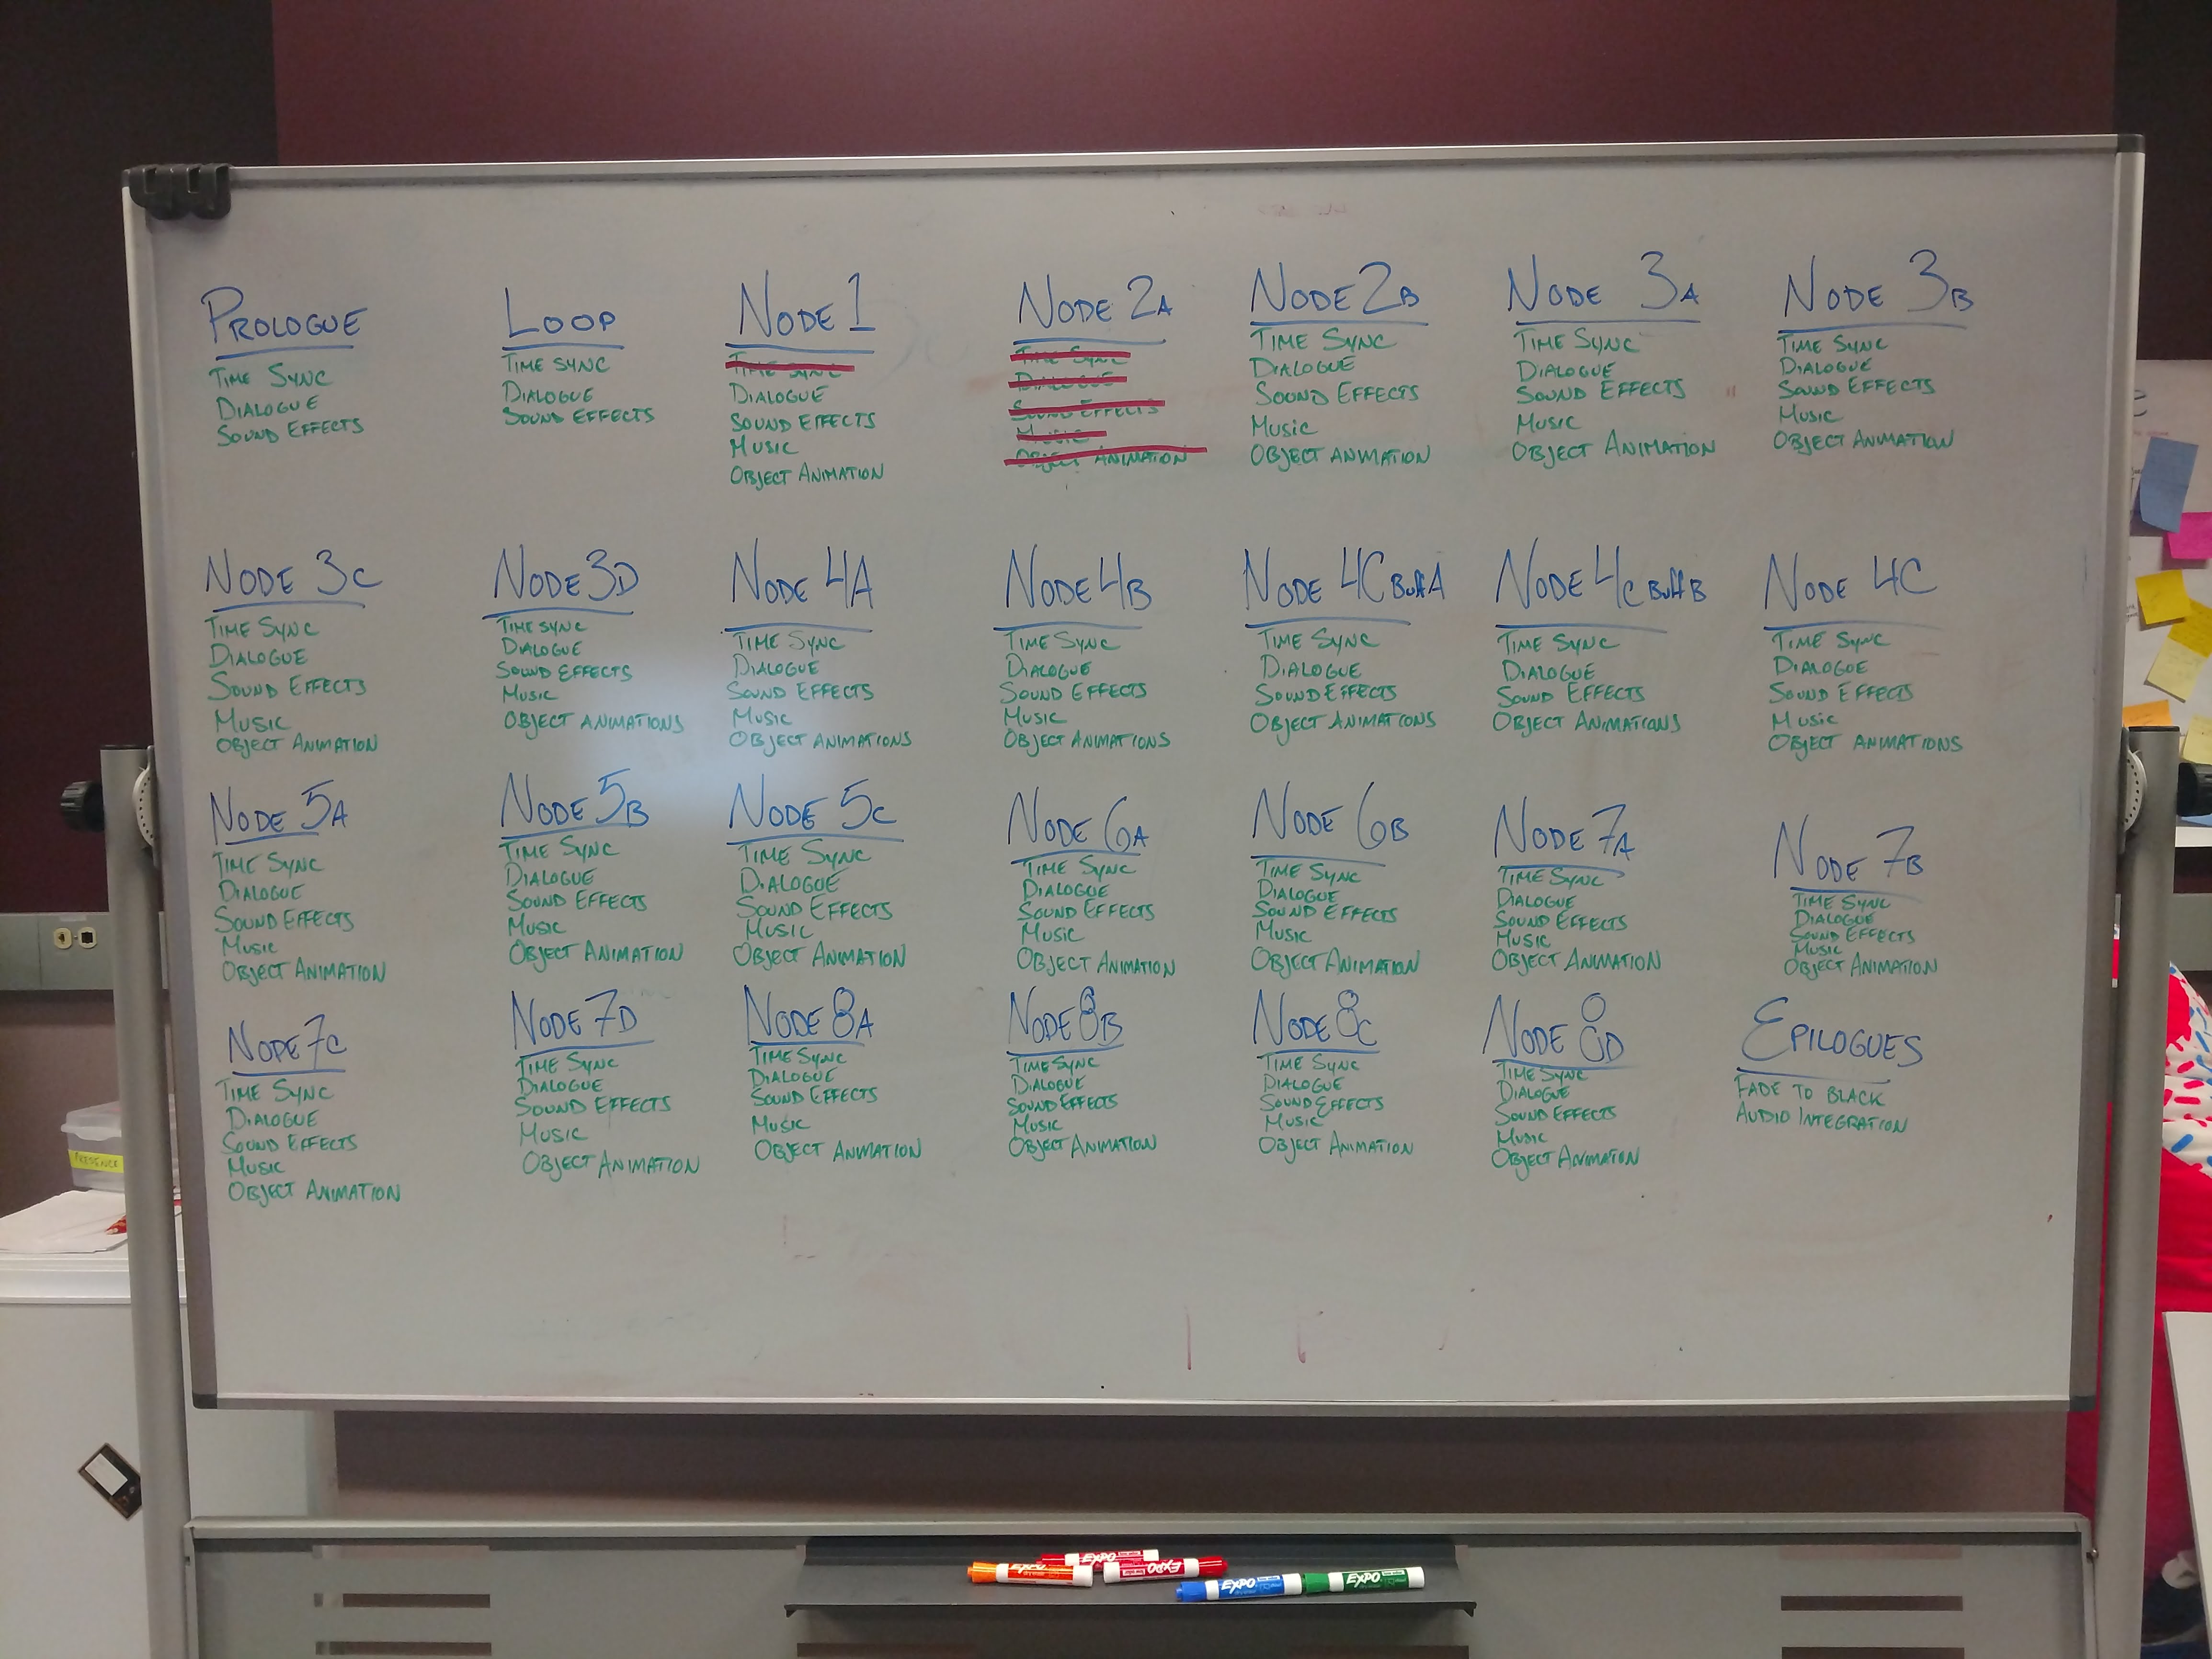 PROLOGUE
TIME SYNC
DIALOGUE
SOUND EFFECTS
LOOP
TIME SYNC
DIALOGUE
SOUND EFFECTS
NODE 1
TIME SYNC
DIALOGUE
SOUND EFFECTS
MUSIC
OBJECT ANIMATION
NODE 2A
TIME SYNC
DIALOGUE
SOUND EFFECTS
MUSIC
OBJECT ANIMATION
NODE 2B
TIME SYNC
DIALOGUE
SOUND EFFECTS
MUSIC
OBJECT ANIMATION
NODE 3A
TIME SYNC
DIALOGUE
SOUND EFFECTS
MUSIC
OBJECT ANIMATION
NODE 3B
TIME SYNC
DIALOGUE
SOUND EFFECTS
MUSIC
OBJECT ANIMATION
NODE 3C
TIME SYNC
DIALOGUE
SOUND EFFECTS
MUSIC
OBJECT ANIMATION
NODE 3D
TIME SYNC
DIALOGUE
SOUND EFFECTS
MUSIC
OBJECT ANIMATIONS
NODE 4A
TIME SYNC
DIALOGUE
SOUND EFFECTS
MUSIC
OBJECT ANIMATIONS
NODE 4B
TIME SYNC
DIALOGUE
SOUND EFFECTS
MUSIC
OBJECT ANIMATIONS
NODE 4C Buff A
TIME SYNC
DIALOGUE
SOUND EFFECTS
OBJECT ANIMATIONS
NODE 4C Buff B
TIME SYNC
DIALOGUE
SOUND EFFECTS
OBJECT ANIMATIONS
NODE 4C
TIME SYNC
DIALOGUE
SOUND EFFECTS
MUSIC
OBJECT ANIMATIONS
NODE 5A
TIME SYNC
DIALOGUE
SOUND EFFECTS
MUSIC
OBJECT ANIMATION
NODE 5B
TIME SYNC
DIALOGUE
SOUND EFFECTS
MUSIC
OBJECT ANIMATION
NODE 5C
TIME SYNC
DIALOGUE
SOUND EFFECTS
MUSIC
OBJECT ANIMATION
NODE 6A
TIME SYNC
DIALOGUE
SOUND EFFECTS
MUSIC
OBJECT ANIMATION
NODE 6B
TIME SYNC
DIALOGUE
SOUND EFFECTS
MUSIC
OBJECT ANIMATION
NODE 7A
TIME SYNC
DIALOGUE
SOUND EFFECTS
MUSIC
OBJECT ANIMATION
NODE 7B
TIME SYNC
DIALOGUE
SOUND EFFECTS
MUSIC
OBJECT ANIMATION
NODE 7C
TIME SYNC
DIALOGUE
SOUND EFFECTS
MUSIC
OBJECT ANIMATION
NODE 7D
TIME SYNC
DIALOGUE
SOUND EFFECTS
MUSIC
OBJECT ANIMATION
NODE 8A
TIME SYNC
DIALOGUE
SOUND EFFECTS
MUSIC
OBJECT ANIMATION
NODE 8B
TIME SYNC
DIALOGUE
SOUND EFFECTS
MUSIC
OBJECT ANIMATION
NODE 8C
TIME SYNC
DIALOGUE
SOUND EFFECTS
MUSIC
OBJECT ANIMATION
NODE 8D
TIME SYNC
DIALOGUE
SOUND EFFECTS
MUSIC
OBJECT ANIMATION
EPILOGUES
FADE TO BLACK
AUDIO INTEGRATION
PRESENCE
EXPO
EXPO
EXPO
EXPO
EXPO